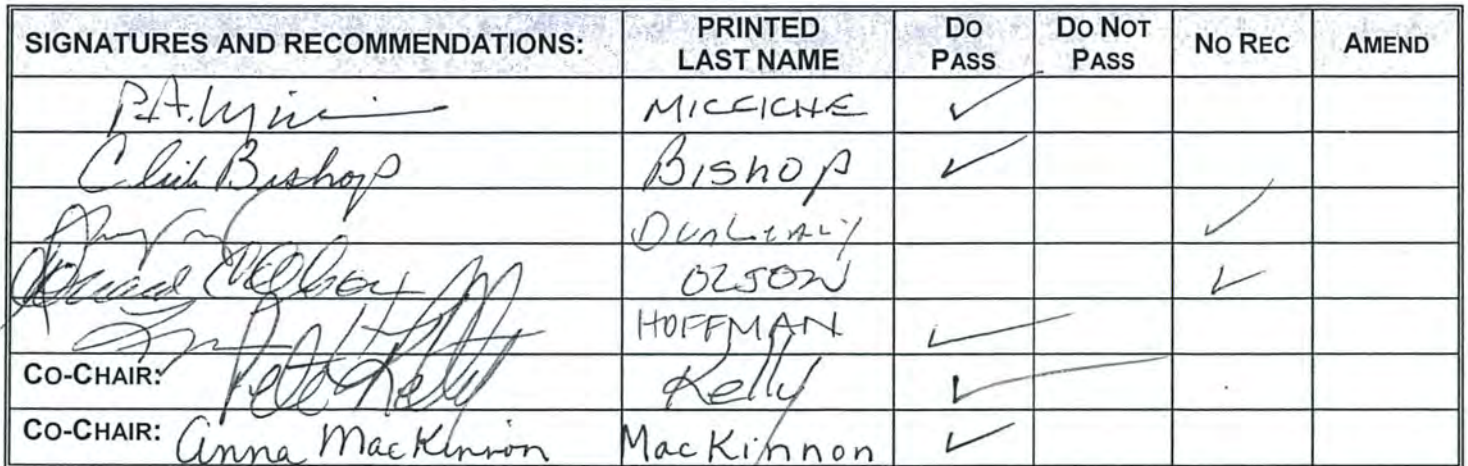 SIGNATURES AND RECOMMENDATIONS: PRINTED LAST NAME DO PASS DO NOT PASS NO REC AMEND
MICCICHE ✓
Click Bishop BISHOP ✓
DUNLEAVY ✓
OLSON ✓
HOFFMAN ✓
CO-CHAIR: Pete Kelly Kelly ✓
CO-CHAIR: Anna MacKinnon MacKinnon ✓